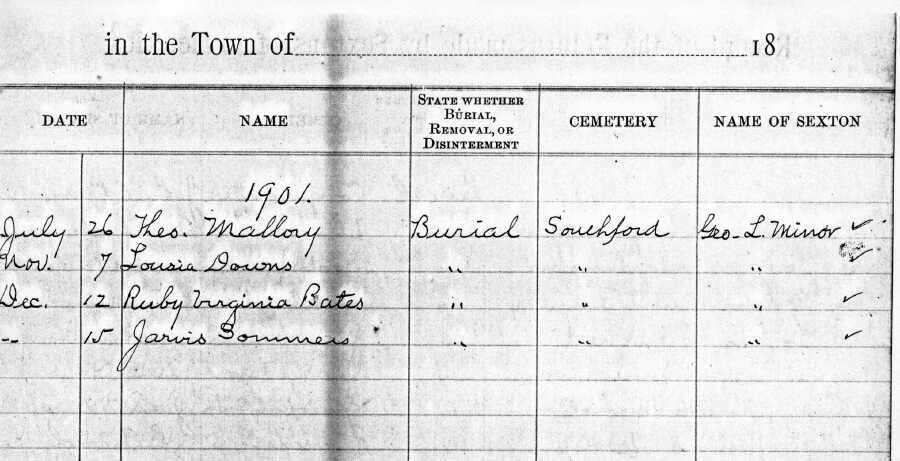 in the Town of 18
DATE NAME STATE WHETHER BURIAL, REMOVAL, OR DISINTERMENT CEMETERY NAME OF SEXTON
1901.
July 26 Theo. Mallory Burial Southford Geo. L. Minor ✓
Nov. 7 Lousia Downs " " " ✓
Dec. 12 Ruby Virginia Bates " " " ✓
-- 15 Jarvis Sommers " " " ✓